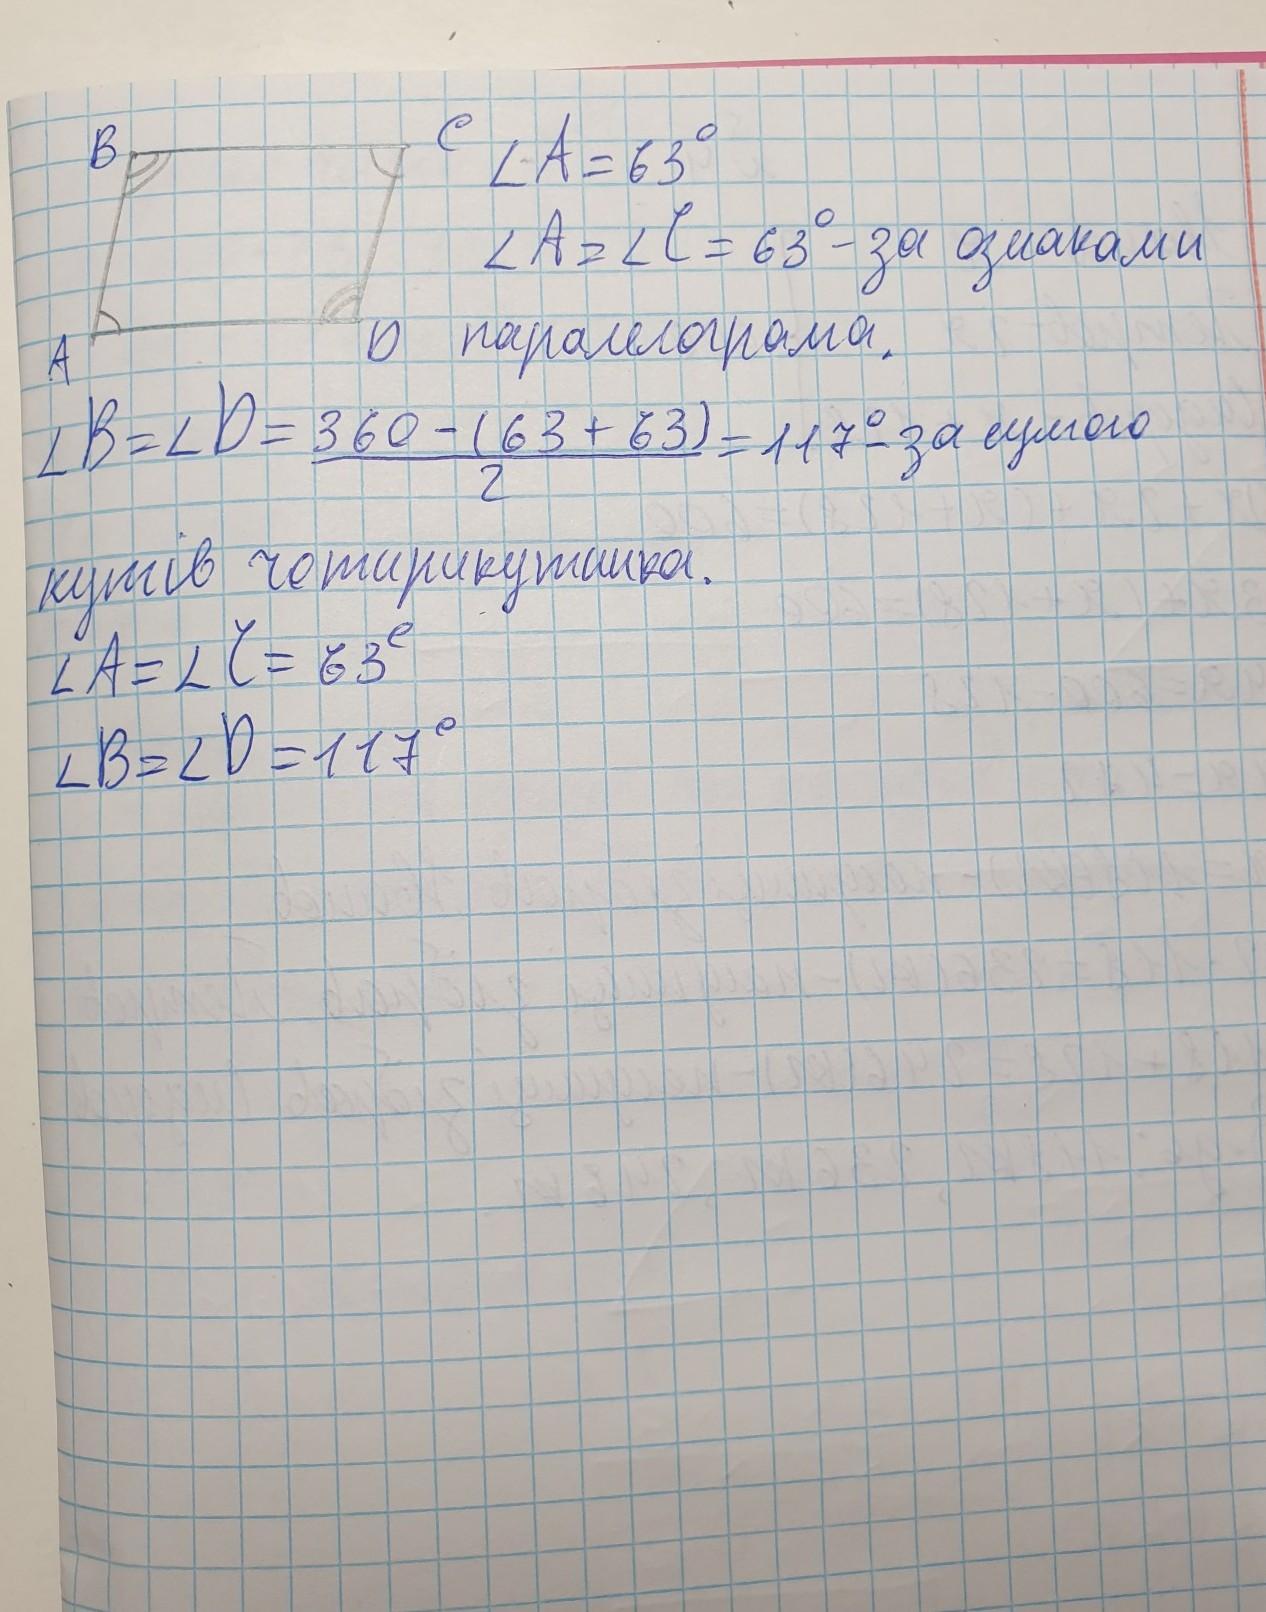 B C ∠A = 63°
∠A = ∠C = 63° - за ознаками
A D паралелограма.
∠B = ∠D = \frac{360 - (63 + 63)}{2} = 117° - за сумою
кутів чотирикутника.
∠A = ∠C = 63°
∠B = ∠D = 117°